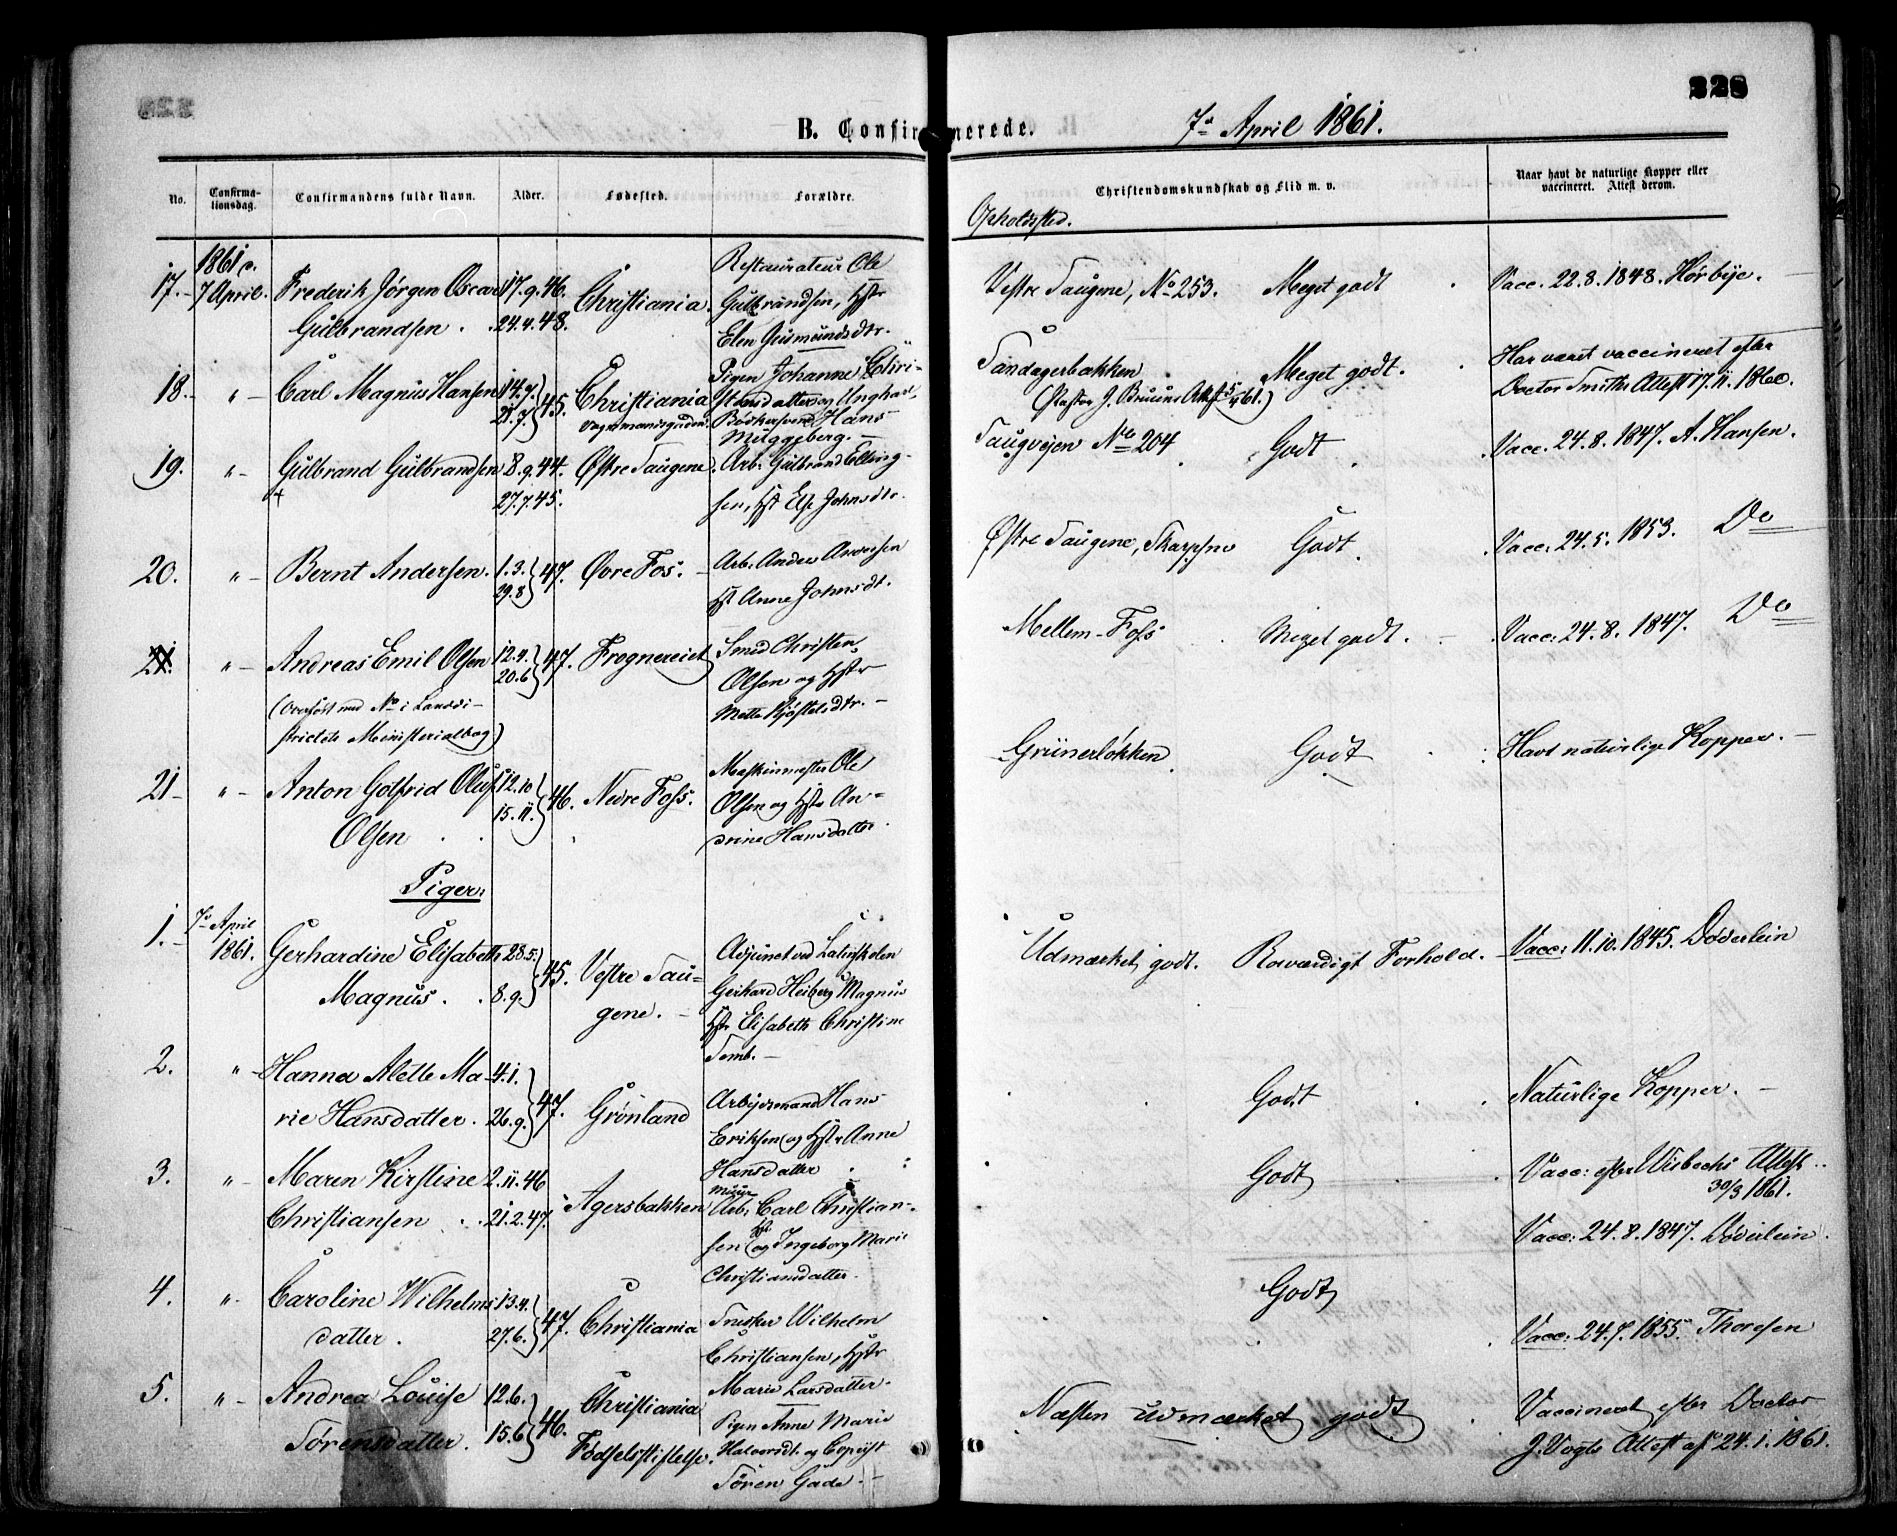 228
B. Confirmerede.
7de April 1861.
No.
Confirma-
tionsdag.
Confirmandens fulde Navn.
Alder.
Fødested.
Forældre.
Christendomskundskab og Flid m. v.
Naar havt de naturlige Kopper eller
vaccineret. Attest derom.
Opholdssted.
1861
17. 7 April. Frederik Jörgen Oscar 17.9.46. Christiania. Restaurateur Ole
Gulbrandsen 24.4.48. Gulbrandsen, Hstr
Elen Gusmundsdtr.
Vestre Saugene, No 253. Meget godt Vacc. 22.8.1848. Hörbye.
18. " Carl Magnus Hansen 14.7. 21.7. 45. Christiania Pigen Johanne Chri-
Vognmandsgaden. stensdatter og Ungkarl,
Bödkersvend Hans
Muggeberg.
Sandagerbakken Meget godt. Har været vaccineret efter
(Pastor J. Bruuns Attest 5/4 61.) Doctor Smiths Attest 17.11.1860.
19. " Gulbrand Gulbrandsen 8.9.44. Østre Saugene. Arb. Gulbrand Elling-
27.7.45. sen, Hst Else Johnsdtr.
Saugveien No 204 Godt Vacc. 24.8.1847. A. Hansen.
20. " Bernt Andersen. 1.3. 29.8 47. Øvre Fos. Arb. Anders Andersen
Hst Anne Johnsdt.
Østre Saugene, Skarpsno Godt. Vacc. 24.5.1853. Do
21. " Andreas Emil Olsen 12.4. 20.6 47. Frognereiet Smed Christen
(Overført med No i Landdi- Olsen og Hstr
strictets Ministerialbog) Mette Kjöstelsdtr.
Mellem-Foss Meget godt. Vacc. 24.8.1847. Do
21 " Anton Gotfrid Oluf 12.10 15.11. 46. Nedre Foss. Maskinmester Ole
Olsen Olsen og Hstr An-
drine Hansdatter.
Grünerløkken Godt Havt naturlige Kopper.
Piger:
1. 7de April
1861. Gerhardine Elisabeth 28.5. 8.9. 45. Vestre Sau- Adjunct ved Latinskolen
Magnus. gene. Gerhard Heiberg Magnus
Hstr Elisabeth Christine
Tomb.
Udmærket godt. Rosværdigt Forhold. Vacc: 11.10.1845. Döderlein
2. " Hanna Alette Ma- 4.1. 26.9. 47. Grönland Arbeidsmand Hans
rie Hansdatter. Eriksen og Hstr Anne
Hansdatter
Godt Naturlige Kopper.
3. " Maren Kirstine 2.11.46 Agersbakken Muur
Christiansen 21.2.47. Arb. Carl Christian-
sen og Hst Ingeborg Marie
Christiansdatter.
Godt Vacc: efter Wisbechs Attest
30/3 1861.
Vacc: 24.8.1847. Döderlein.
4. " Caroline Wilhelms 13.4. 27.6. 47. Christiania Snedker Wilhelm
datter. Christiansen, Hstr
Marie Larsdatter.
Godt Vacc: 24.7.1855. Thoresen
5. " Andrea Louise 12.6. 15.6 46. Christiania Pigen Anne Marie
Sörensdatter. Födselsstiftelse. Halvorsdt. og Copist
Sören Gade.
Næsten udmærket godt Vaccineret efter Doctor
J. Vogts Attest af 24.1.1861.